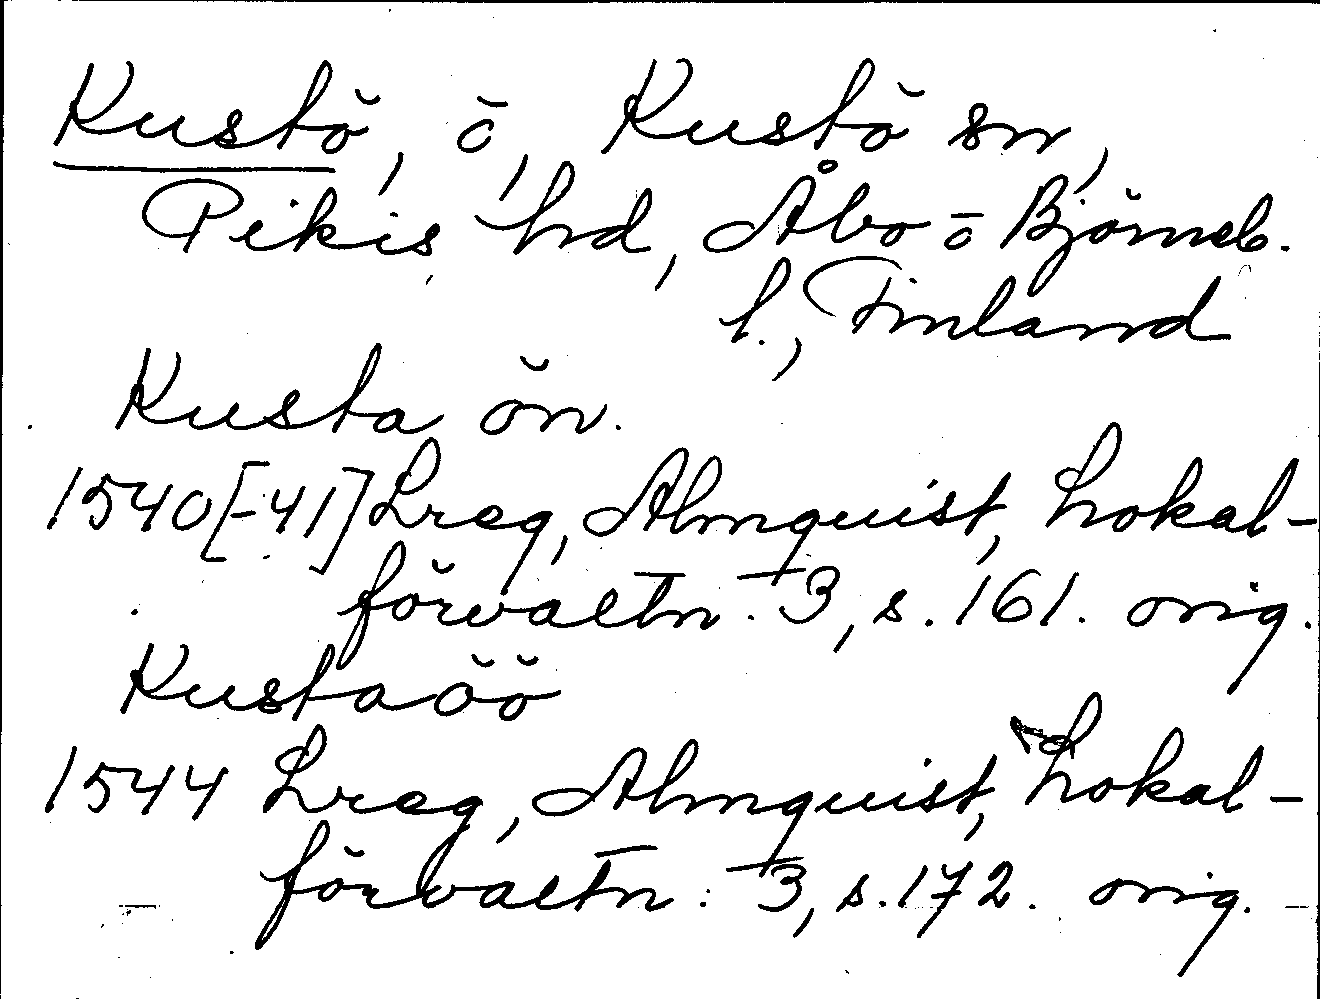 Kustö, ö, Kustö sn,
Pikis hd, Åbo o Björneb.
l., Finland
Kusta ön.
1540[-41] Lreg, Almquist, Lokal-
förvaltn. 3, s. 161. orig.
Kustaöö
1544 Lreg, Almquist, Lokal-
förvaltn. 3, s. 172. orig.